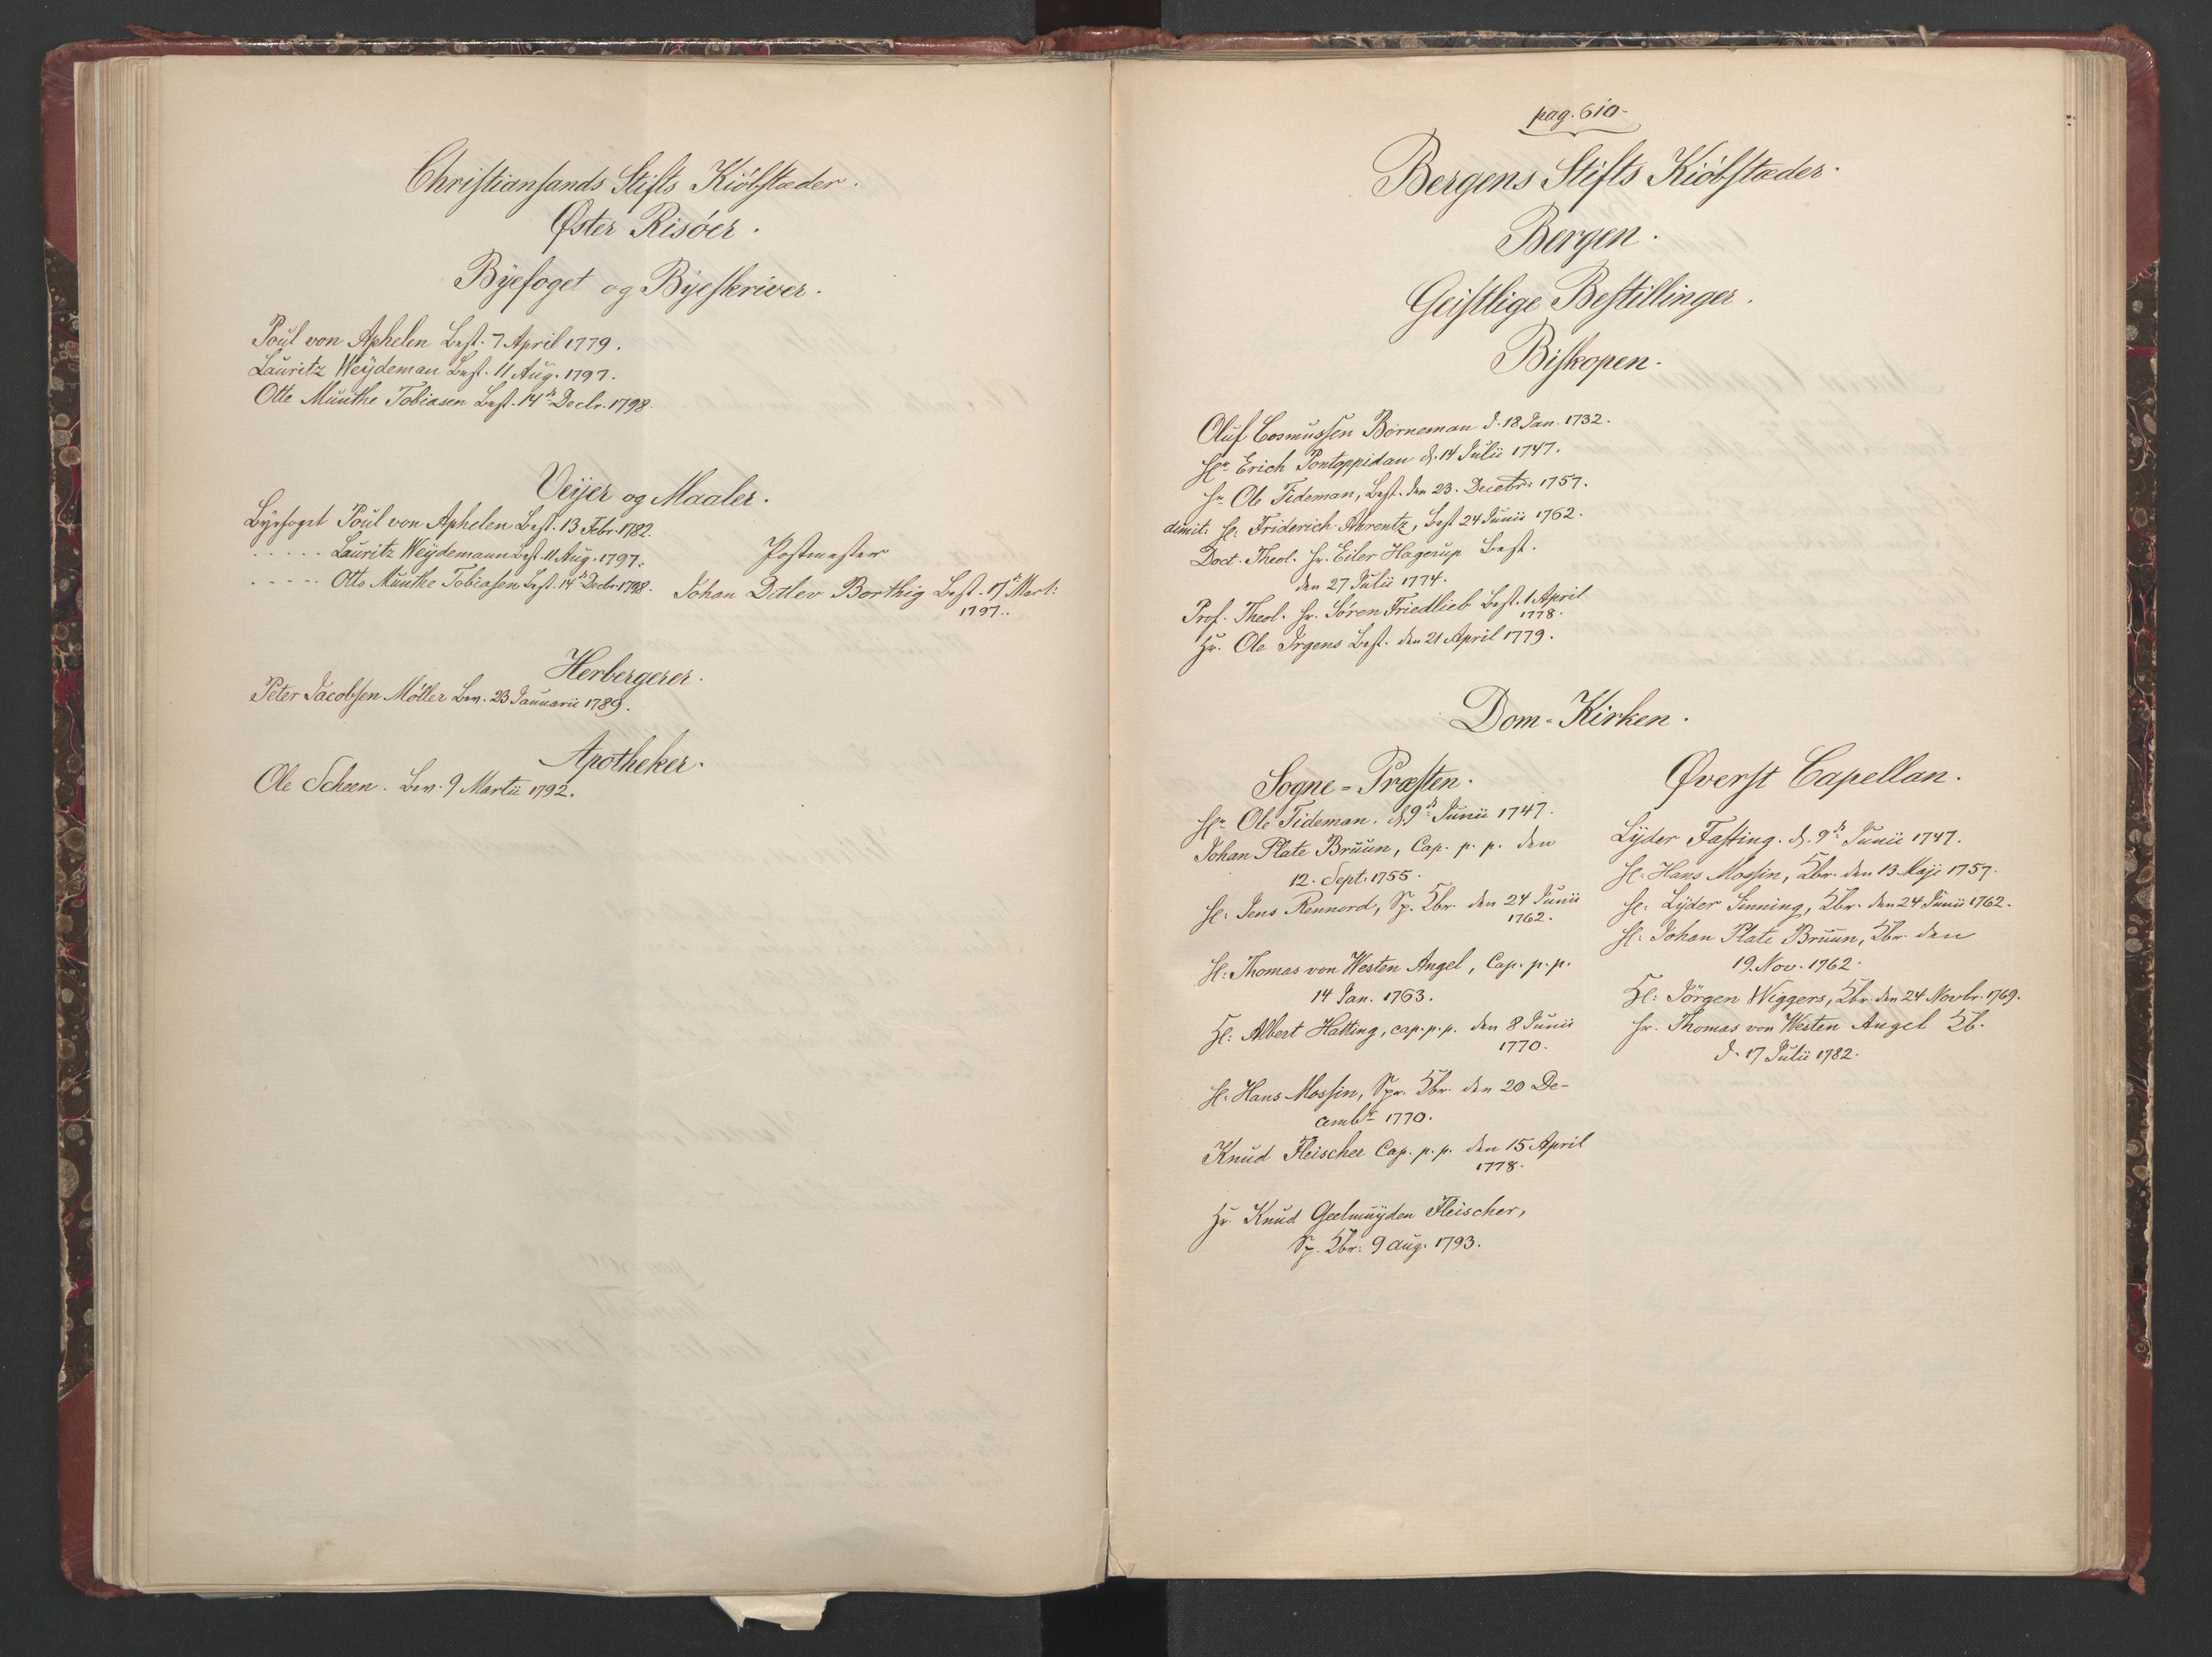 Christiansands Stifts Kiöbstæder.
Øster Risöer.
Byefoget og Byeskriver.
Poul von Aphelen Best. 7 April 1779.
Lauritz Weydeman Best. 11 Aug. 1797.
Otto Munthe Tobiasen Best. 14de Decbr. 1798.
Veyer og Maaler.
Byefoget Poul von Aphelen Best. 13 Febr. 1782.
..... Lauritz Weydemann Best. 11. Aug. 1797.
..... Otto Munthe Tobiasen Best. 14de Decbr. 1798.
Postmester
Johan Ditlev Borthig Best. 17de Mart:
1797.
Herbergerer.
Peter Jacobsen Möller Bev. 23 Januarii 1789.
Apotheker.
Ole Scheen. Bev. 9 Martii 1792.
pag. 610.
Bergens Stifts Kiöbstæder.
Bergen.
Geistlige Bestillinger.
Biskopen.
Oluf Cosmussen Borneman d. 18 Jan. 1732.
Hr Erich Pontoppidan d. 14 Julii 1747.
Hr Ole Tideman, Best. den 23. Decebr. 1757.
dimit: H: Friderich Ahrentz, Best 24 Junii 1762.
Doct. Theol. Hr. Eiler Hagerup Best.
den 27 Julii 1774.
Prof. Theol. Hr. Sören Friedlieb Best. 1 April
1778.
Hr. Ole Irgens Best. den 21 April 1779.
Dom-Kirken.
Sogne-Præsten.
Hr Ole Tideman. d. 9de Junii 1747.
Johan Plate Bruun, Cap. p. p. den
12. Sept. 1755.
H: Jens Rennord, Sp. Kbr. den 24 Junii
1762.
H: Thomas von Westen Angel, Cap. p. p.
14 Jan. 1763.
H: Albert Hatting, cap. p. p. den 8 Junii
1770.
H: Hans Mossin, Spr. Kbr. den 20 De-
cembr 1770.
Knud Fleischer Cap. p. p. den 15 April
1778.
Hr. Knud Geelmuyden Fleischer,
Sp. Kbr: 9 aug. 1793.
Øverst Capellan.
Lyder Fasting. d. 9de Junii 1747.
H: Hans Mossin, Kbr. den 13 Maji 1757.
H: Lyder Finning, Kbr. den 24 Junii 1762.
H: Johan Plate Bruun, Kbr. den
19. Nov. 1762.
H: Jörgen Wiggers, Kbr. den 24 Novbr. 1769.
Hr. Thomas von Westen Angel Kb.
d. 17 Julii 1782.